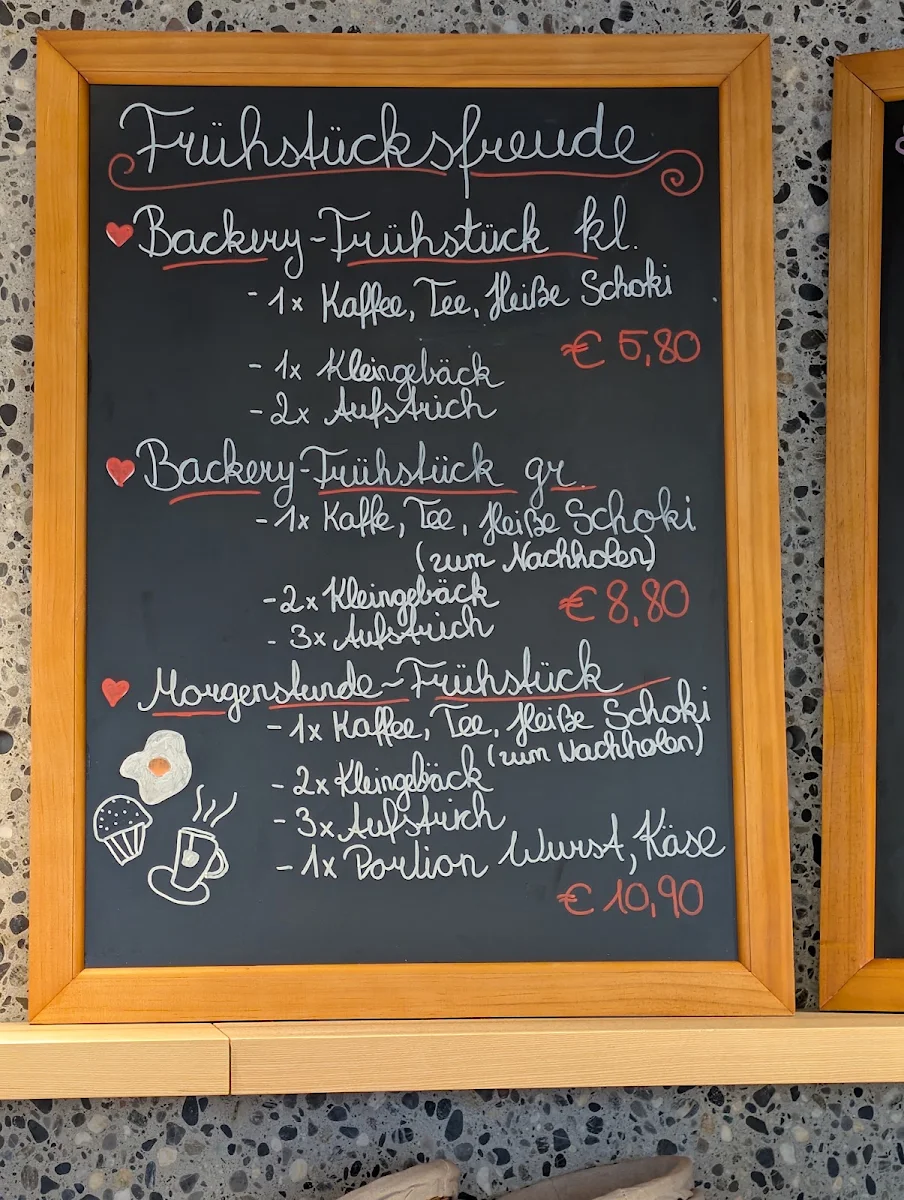 Frühstücksfreude
Backery-Frühstück kl.
- 1x Kaffee, Tee, Heiße Schoki
€ 5,80
- 1x Kleingebäck
- 2x Aufstrich
Backery-Frühstück gr.
- 1x Kaffe, Tee, Heiße Schoki
(zum Nachholen)
- 2x Kleingebäck
€ 8,80
- 3x Aufstrich
Morgenstunde-Frühstück
- 1x Kaffee, Tee, Heiße Schoki
(zum Nachholen)
- 2x Kleingebäck
- 3x Aufstrich
- 1x Portion Wurst, Käse
€ 10,90